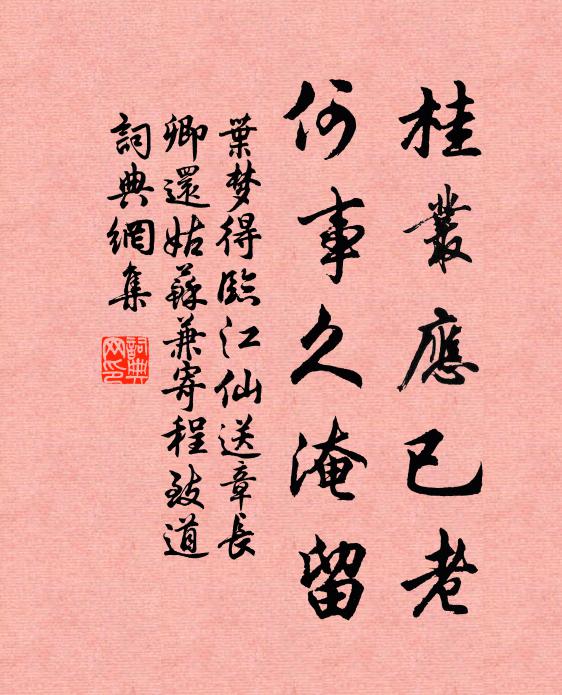 桂叢應已老
何事久淹留
葉梦得臨江仙送章長
卿還姑蘇兼寄程致道
詞典網集
詞典
网印